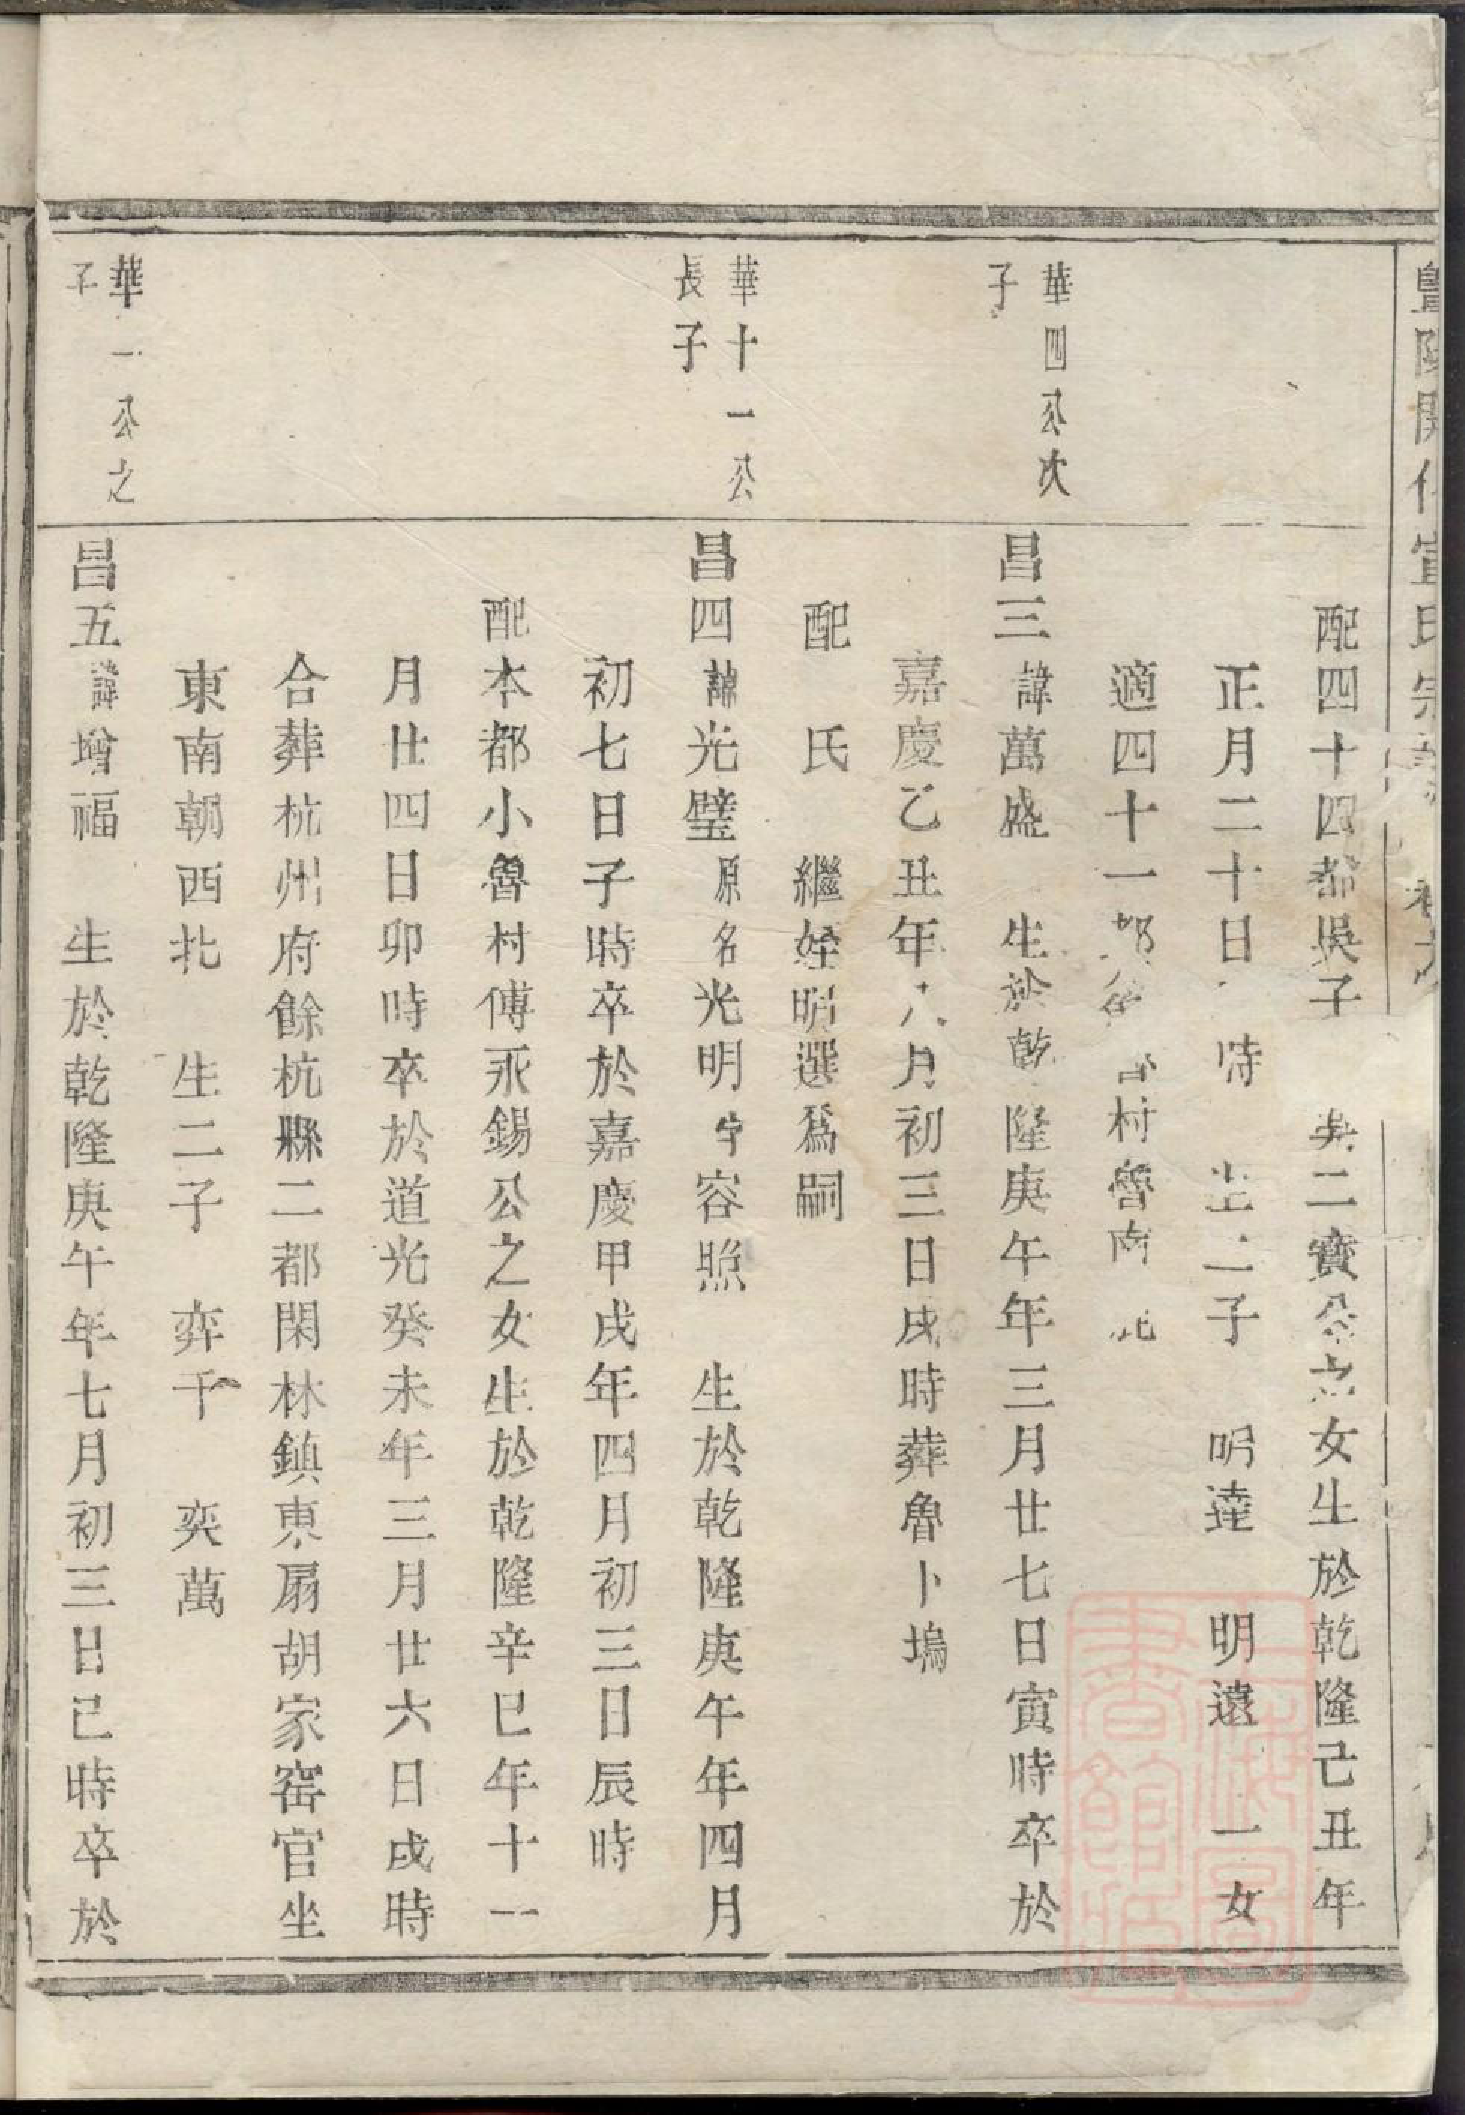 暨陽開化宣氏宗譜 卷
配四十四都吳子 吳二寶公之女生於乾隆己丑年
正月二十日 時 生二子 明達 明遠 一女
適四十一都 村魯南
華四公次子
昌三諱萬盛 生於乾隆庚午年三月廿七日寅時卒於
嘉慶乙丑年八月初三日戌時葬魯卜塢
配 氏 繼姪明選爲嗣
華十一公長子
昌四諱光璧原名光明字容照 生於乾隆庚午年四月
初七日子時卒於嘉慶甲戌年四月初三日辰時
配本都小魯村傅永錫公之女生於乾隆辛巳年十一
月廿四日卯時卒於道光癸未年三月廿六日戌時
合葬杭州府餘杭縣二都閑林鎮東扇胡家窑官坐
東南朝西北 生二子 弈千 奕萬
華一公之子
昌五諱增福 生於乾隆庚午年七月初三日己時卒於
上海圖書館藏